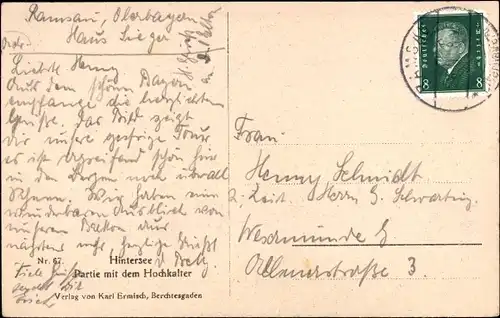 Ramsau, Oberbayern
Haus Sieger
Liebste Henny
Aus dem schönen Bayern
empfange die herzlichsten
Grüße. Das Bild zeigt
dir unsere gestrige Tour
es ist ergreifend schön hier
in den Bergen noch überall
Schnee. Wir haben einen
wunderbaren Ausblick von
unserem Balkon zur
nächstens mehr, herzliche Grüße
Nr. 67. Hintersee
Partie mit dem Hochkalter
Verlag von Karl Ermisch, Berchtesgaden
Viele Grüße
sendet dir
Deutsches Reich
8 8
RAMSAU
Frau
Henny Schmidt
z. Zeit. Herrn G. Schwarting
Wesermünde G
Allmersstraße 3.